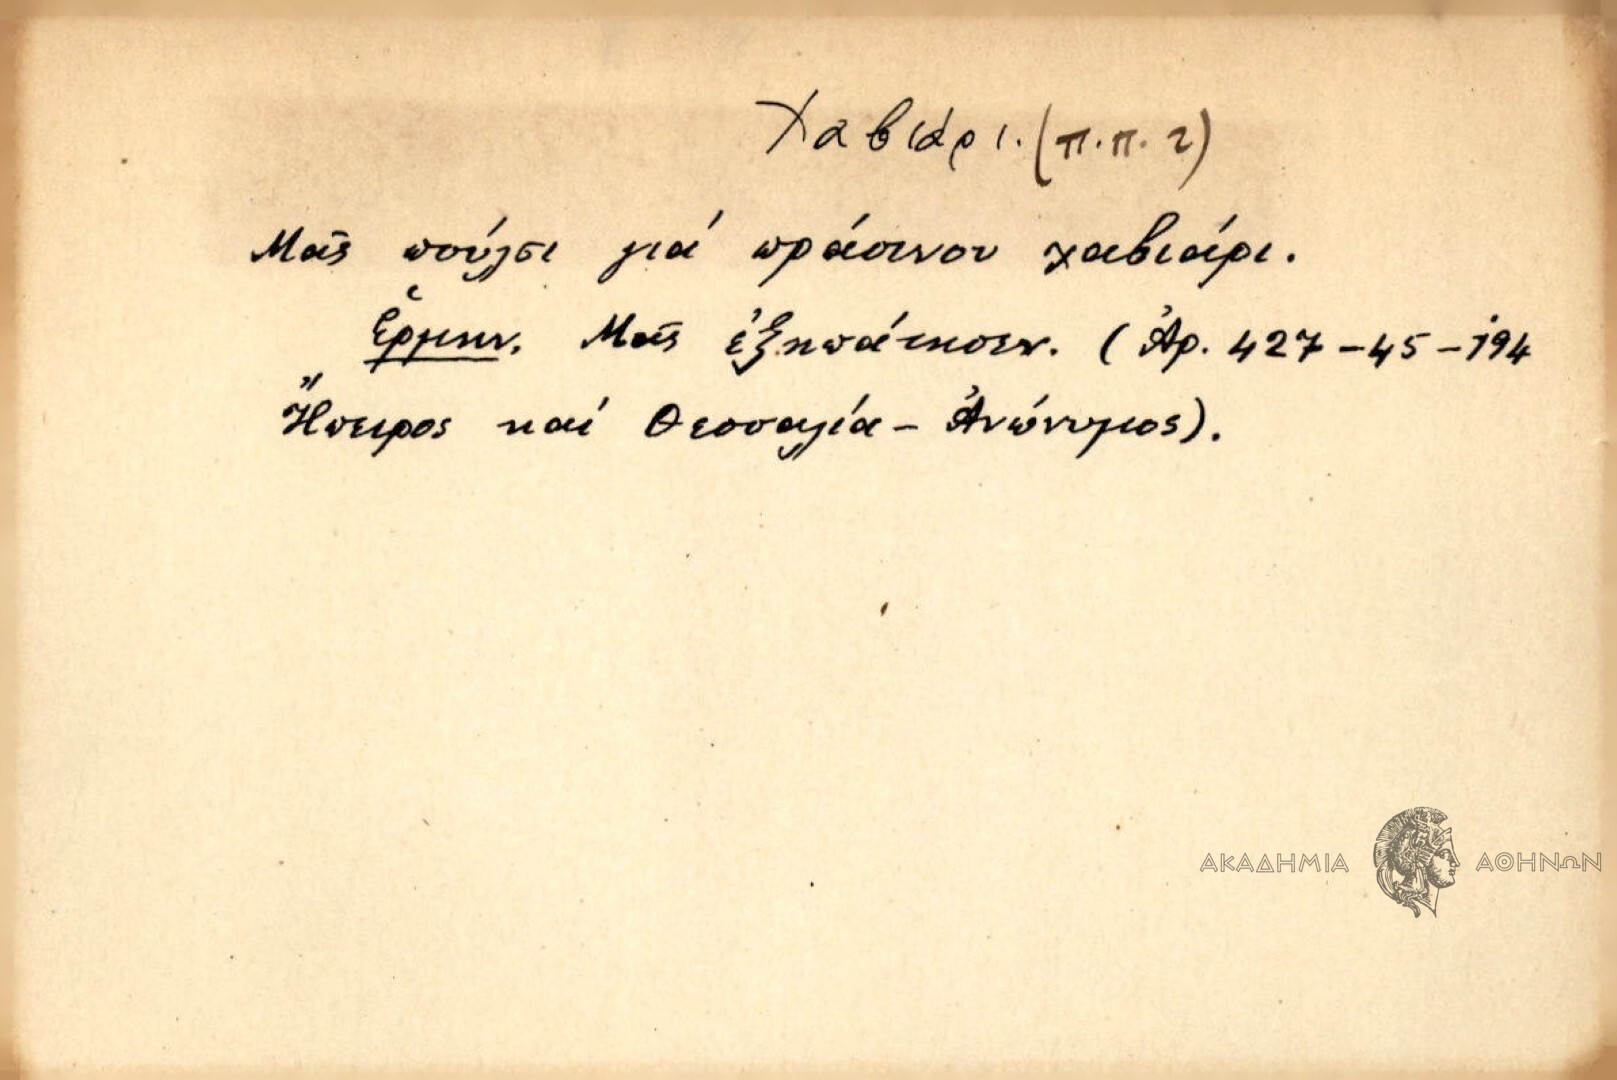 Χαβιάρι. (π.π. 2)
Μᾶς πούλσι γιά πράσινου χαβιάρι.
Ἑρμην. Μᾶς ἐξηπάτησεν. (Ἀρ. 427-45-194
Ἤπειρος καί Θεσσαλία - Ἀνώνυμος).
ΑΚΑΔΗΜΙΑ ΑΘΗΝΩΝ